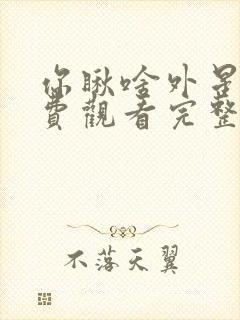 你瞅啥外星
費觀看完整
不落天翼